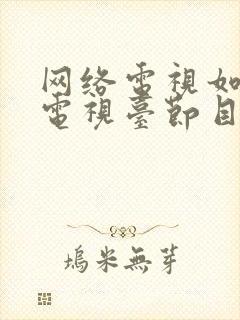 网络電視如
電視臺節目
塢米無芽